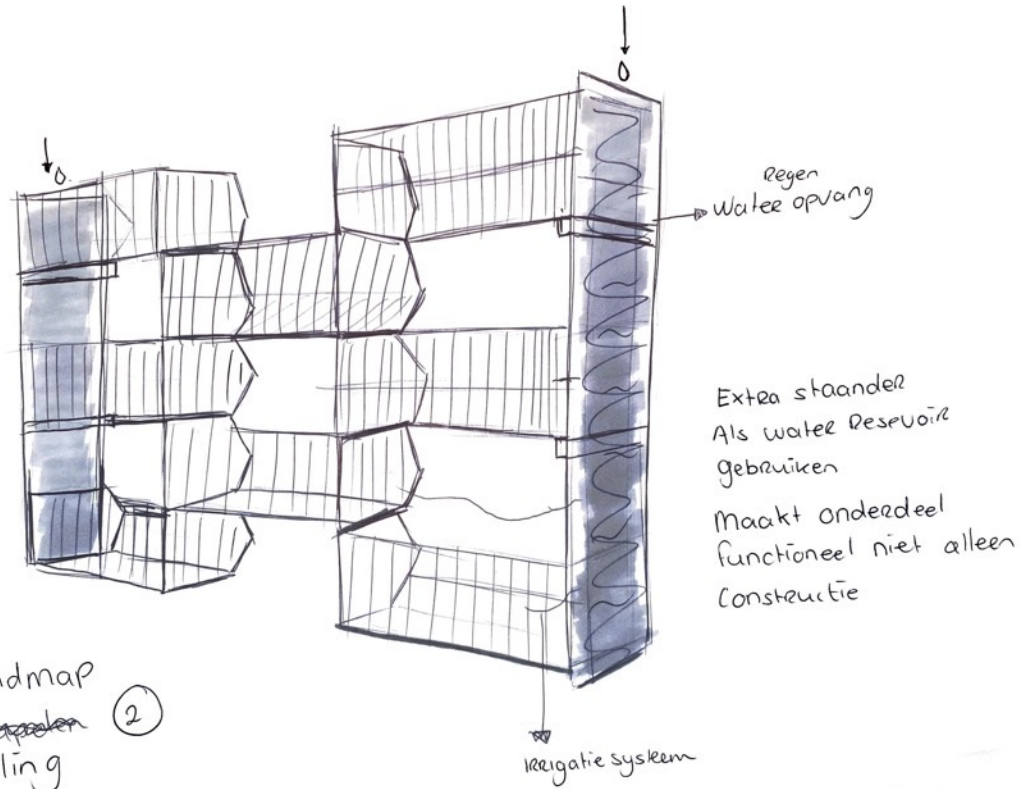 Regen
Water opvang
Extra staander
Als water Resevoir
gebruiken
Maakt onderdeel
functioneel niet alleen
constructie
dmap
2
ling
Irrigatie systeem